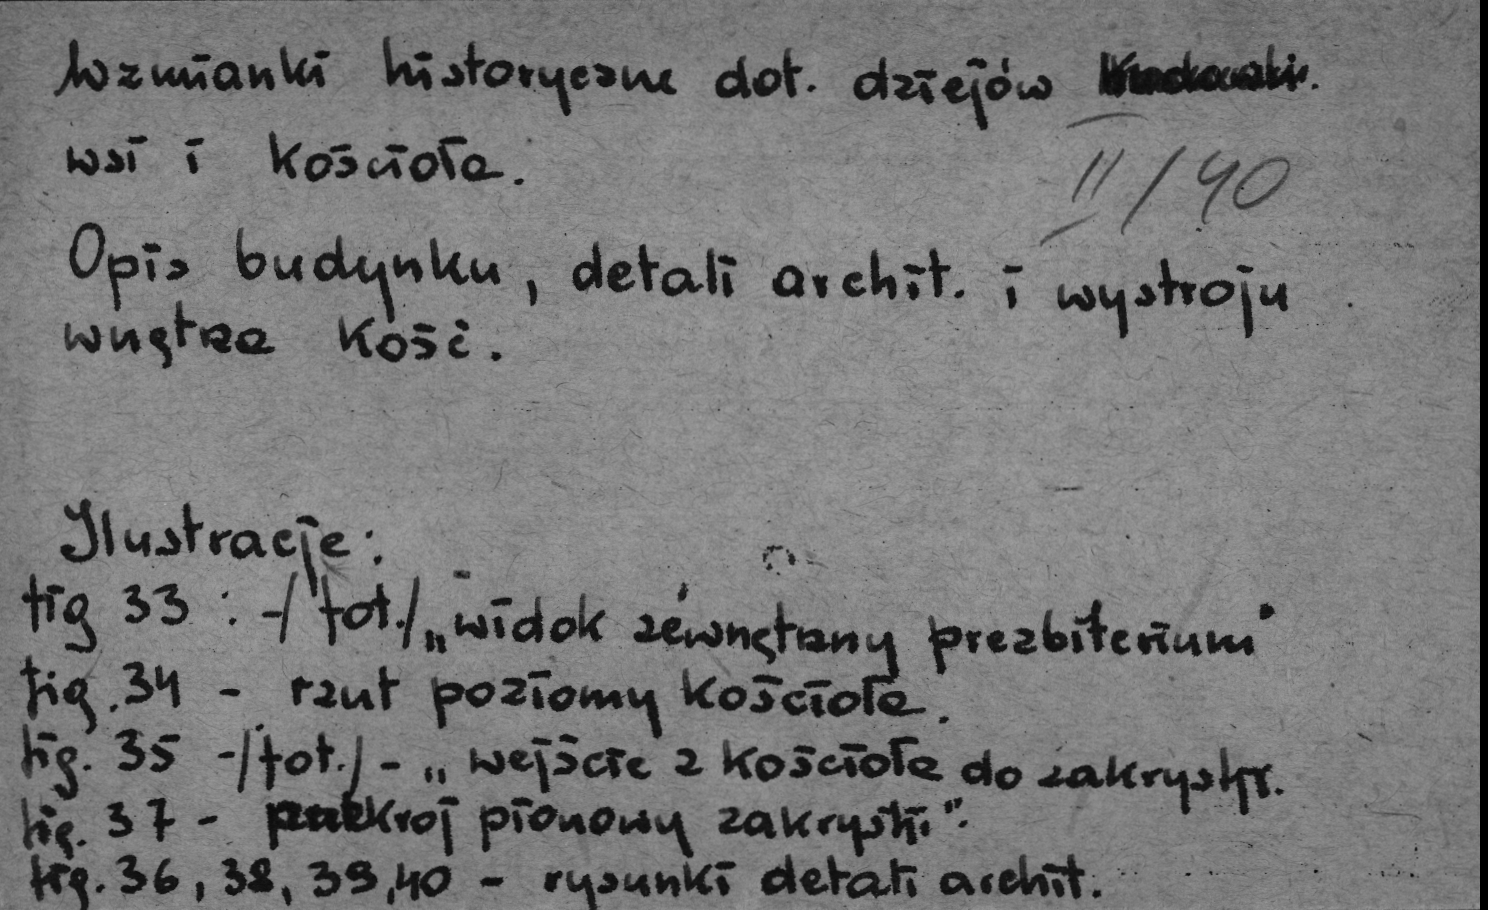 Wzmianki historyczne dot. dziejów
wsi i kościoła.
II/40
Opis budynku, detali archit. i wystroju
wnętrza kość.
Ilustracje:
fig 33 : -/fot./ „widok zewnętrzny prezbiterium"
fig. 34 - rzut poziomy kościoła.
fig. 35 -/fot./ - „wejście z kościoła do zakrystii.
fig. 37 - przekrój pionowy zakrystii".
fig. 36, 38, 39, 40 - rysunki detali archit.